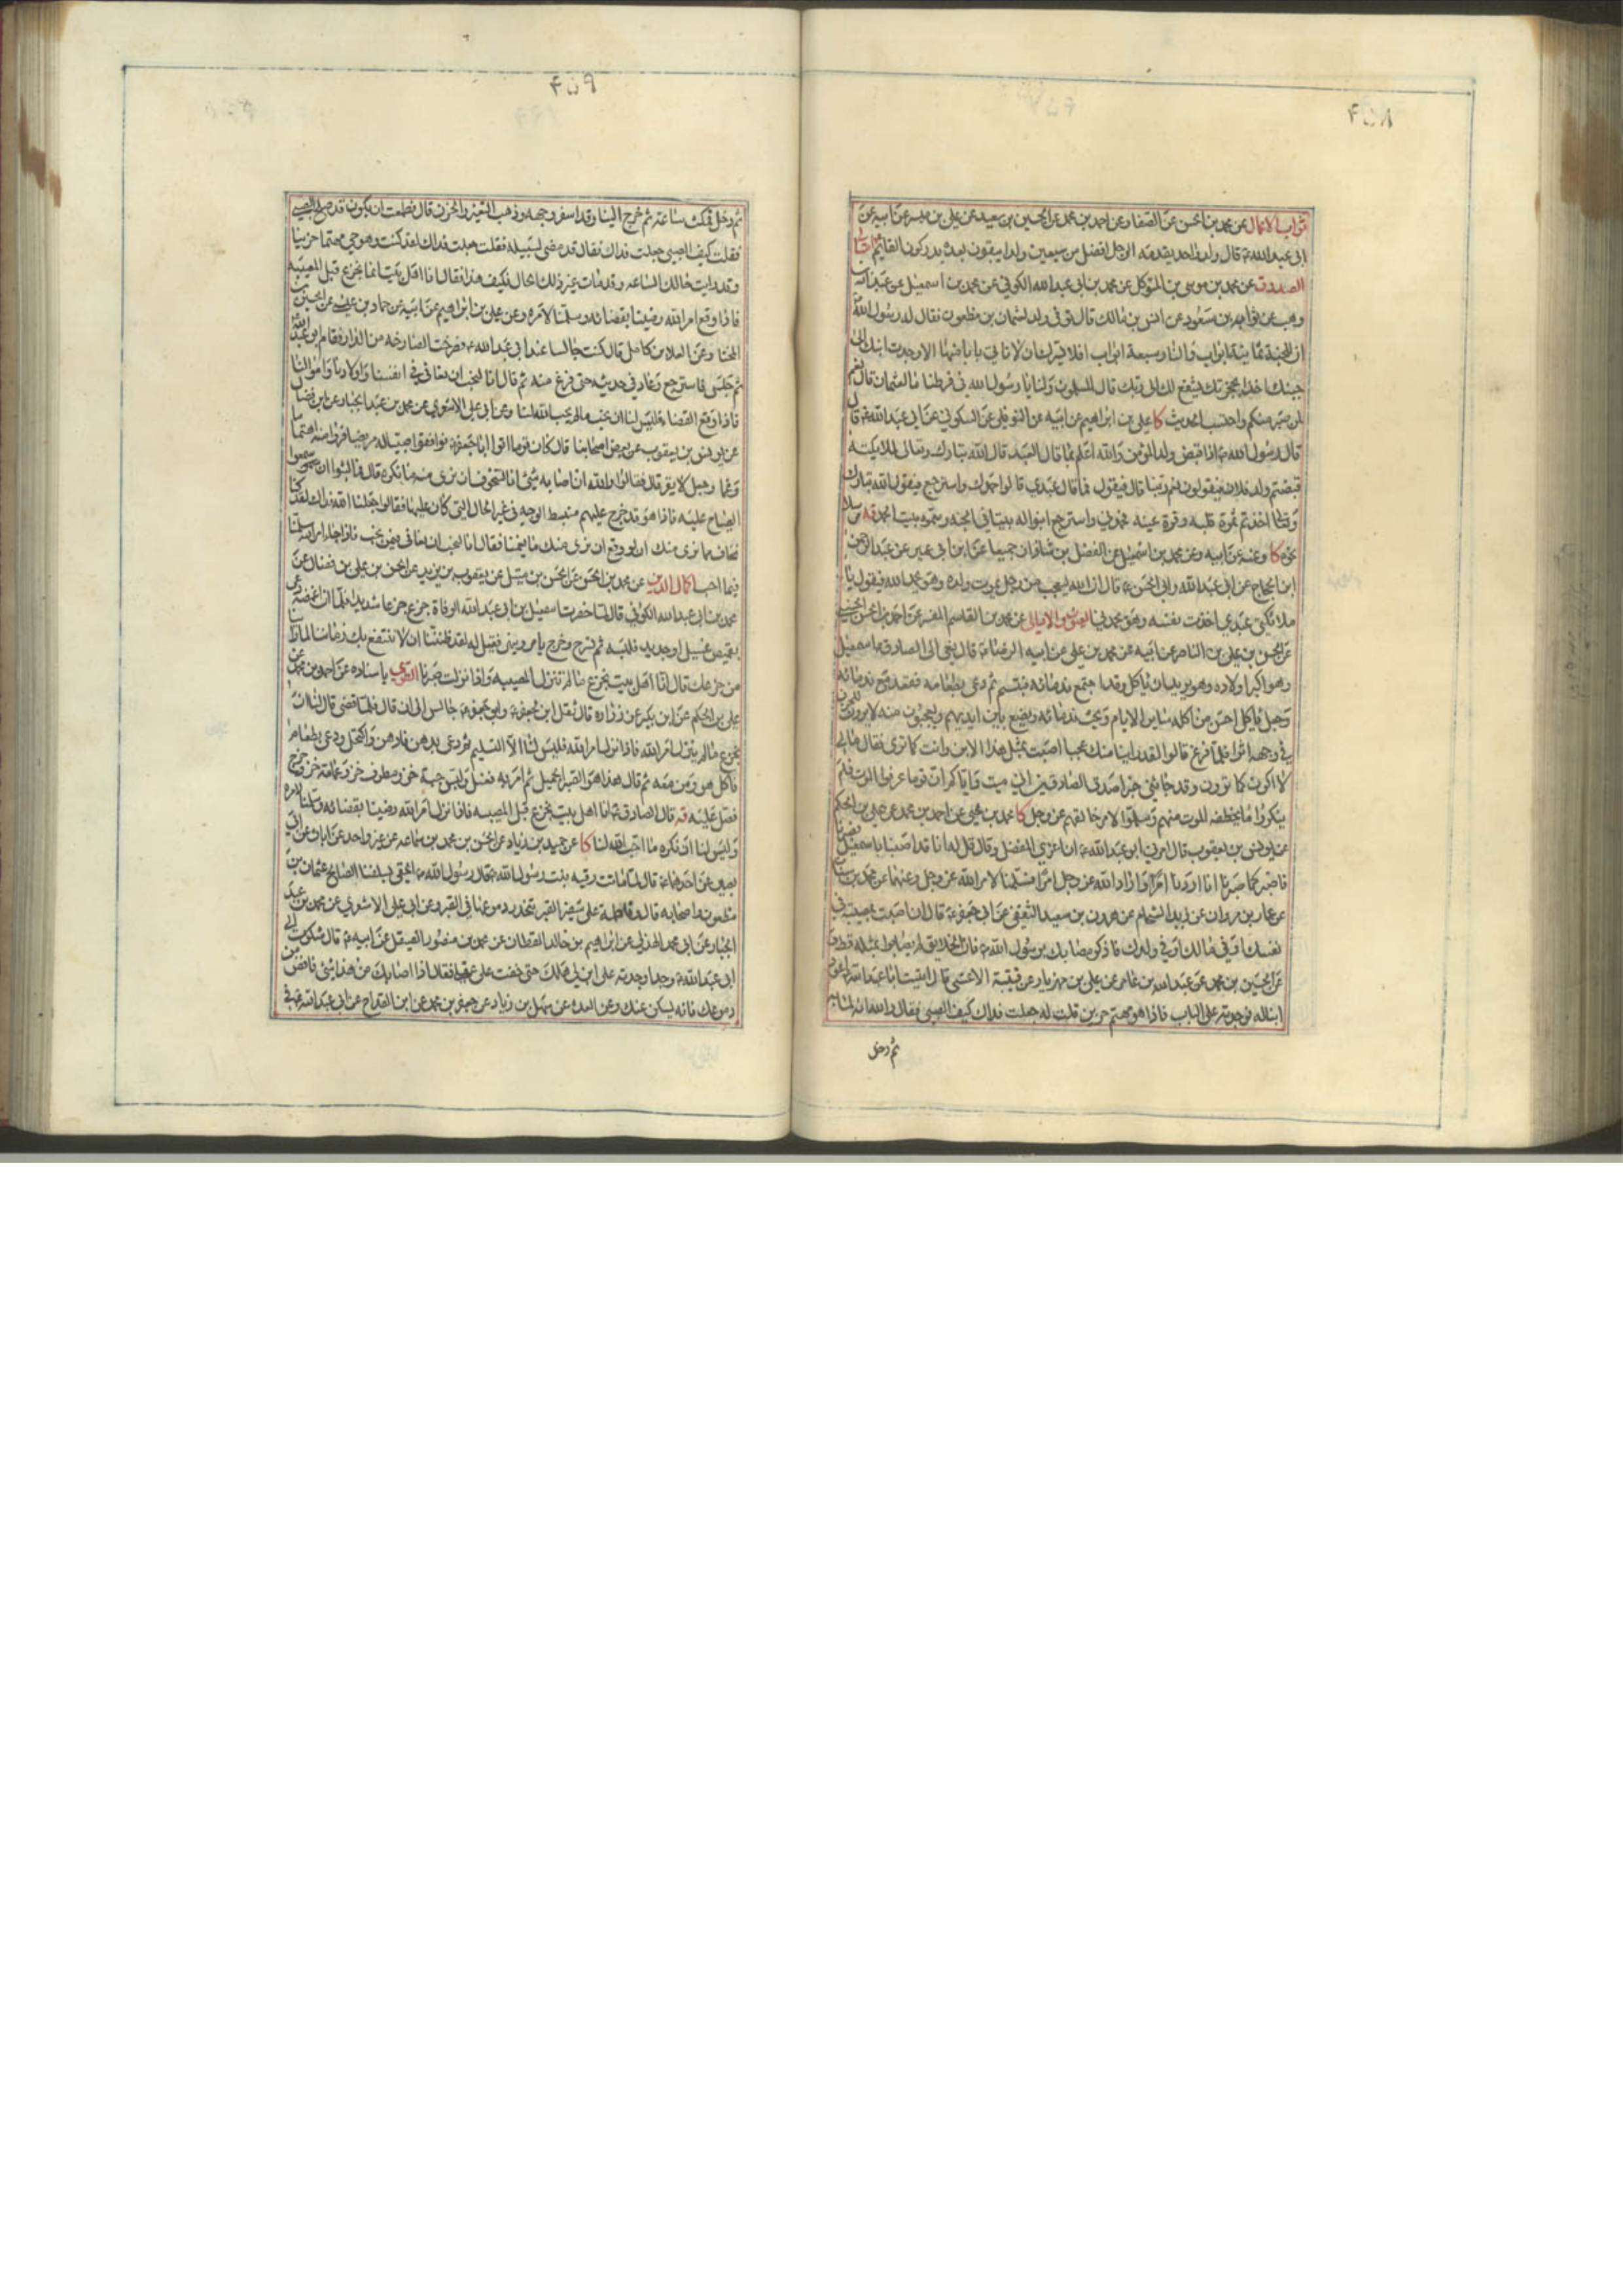 ۴۵۸
ثواب الاعمال عن محمد بن الحسن عن الصفار وعن احمد بن محمد عن الحسين بن سعيد عن علي بن ميسر عن ابيه عن
ابي عبد الله ع قال ولد واحد يقدمه الرجل افضل من سبعين ولدا يبقون بعده يدركون القائم
الصدوق عن محمد بن موسى بن المتوكل عن محمد بن ابي عبد الله الكوفي عن محمد بن اسمعيل عن عبد الله بن
وهب عن ثوابة بن مسعود عن انس بن مالك قال توفي ولد لعثمان بن مظعون فقال له رسول الله
ان للجنة ثمانية ابواب وللنار سبعة ابواب افلا يسرك ان لا تاتي بابا منها الا وجدت ابنك الى
جنبك اخذا بحجزتك يشفع لك الى ربك قال المسلمون ولنا يا رسول الله في فرطنا ما لعثمان قال نعم
لمن صبر منكم واحتسب الحديث كا علي بن ابراهيم عن ابيه عن النوفلي عن السكوني عن ابي عبد الله ع قال
قال رسول الله ص اذا قبض ولد المؤمن والله اعلم بما قال العبد قال الله تبارك وتعالى لملائكته
قبضتم ولد فلان فيقولون نعم ربنا قال فيقول فما قال عبدي قالوا حمدك واسترجع فيقول الله تبارك
وتعالى اخذتم ثمرة قلبه وقرة عينه فحمدني واسترجع ابنوا له بيتا في الجنة وسموه بيت الحمد
نحوه كا وعنه عن ابيه وعن محمد بن اسمعيل عن الفضل بن شاذان جميعا عن ابن ابي عمير عن عبد الرحمن
ابن الحجاج عن ابي عبد الله وابي الحسن ع قال ان الله ليعجب من رجل يموت ولده وهو يحمد الله فيقول يا
ملائكتي عبدي اخذت نفسه وهو يحمدني العيون والامالي عن محمد بن القاسم المفسر عن احمد بن الحسن الحسيني
عن الحسن بن علي بن الناصر عن ابيه عن محمد بن علي عن ابيه الرضا ع قال نعي الى الصادق ع اسمعيل
وهو اكبر اولاده وهو يريد ان ياكل وقد اجتمع ندمائه فتبسم ثم دعى بطعامه فقعد مع ندمائه
وجعل ياكل احسن من اكله سائر الايام ويحث ندمائه ويضع بين ايديهم ويعجبون منه لا يرون للحزن
في وجهه اثرا فلما فرغ قالوا لقد راينا منك عجبا اصبت بمثل هذا الابن وانت كما ترى فقال ما لي
لا اكون كما ترون وقد جائني خبر اصدق الصادقين اني ميت واياكم ان قوما عرفوا الموت فلم
ينكروا ما يخطفه الموت منهم وسلموا لامر خالقهم عز وجل كا محمد بن يحيى عن احمد بن محمد عن علي بن الحكم
عن يونس بن يعقوب قال امرني ابو عبد الله ع ان اعزي المفضل وقال قل له انا قد اصبنا باسمعيل فصبرنا
فاصبر كما صبرنا انا اردنا امرا واراد الله عز وجل امرا فسلمنا لامر الله عز وجل وعنهما عن محمد بن سنان
عن عمار بن مروان عن زيد الشحام عن عمرو بن سعيد الثقفي عن ابي جعفر ع قال ان اصبت بمصيبة في
نفسك او في مالك او في ولدك فاذكر مصابك برسول الله ص فان الخلايق لم يصابوا بمثله قط وعن
عن الحسين بن محمد عن عبد الله بن عامر عن علي بن مهزيار عن قتيبة الاعشى قال اتيت ابا عبد الله اعود
ابنا له فوجدته على الباب فاذا هو مهتم حزين فقلت له جعلت فداك كيف الصبي فقال والله انه لما به
ثم دخل
۴۵۹
ثم دخل فمكث ساعة ثم خرج الينا وقد اسفر وجهه وذهب التغير والحزن قال فطمعت ان يكون قد صلح الصبي
فقلت كيف الصبي جعلت فداك فقال قد مضى لسبيله فقلت جعلت فداك لقد كنت وهو حي مهتما حزينا
وقد رايت حالك الساعة وقد مات غير ذلك الحال فكيف هذا فقال انا اهل بيت انما نجزع قبل المصيبة
فاذا وقع امر الله رضينا بقضائه وسلمنا لامره وعن علي بن ابراهيم عن ابيه عن حماد بن عيسى عن الحسين بن
المختار وعن العلاء بن كامل قال كنت جالسا عند ابي عبد الله ع فصرخت الصارخة من الدار فقام ابو عبد الله
ثم جلس فاسترجع وعاد في حديثه حتى فرغ منه ثم قال انا لنحب ان نعافى في انفسنا واولادنا واموالنا
فاذا وقع القضاء فليس لنا ان نحب ما لم يحب الله لنا وعن ابي علي الاشعري عن محمد بن عبد الجبار عن ابن فضال
عن يونس بن يعقوب عن بعض اصحابنا قال كان قوما اتوا ابا جعفر ع فوافقوا صبيا له مريضا فراوا منه اهتماما
وغما وجعل لا يقر قال فقالوا والله ان اصابه شيئ انا لنتخوف ان نرى منه ما نكره قال فما لبثوا ان سمعوا
الصياح عليه فاذا هو قد خرج عليهم منبسط الوجه في غير الحال التي كان عليها فقالوا جعلنا الله فداك لقد كنا
نخاف مما نرى منك ان لو وقع ان نرى منك ما يغمنا فقال انا لنحب ان نعافى فيمن نحب فاذا جاء امر الله سلمنا
فيما احب كمال الدين عن محمد بن الحسن عن الحسن بن متيل عن يعقوب بن يزيد عن الحسن بن علي بن فضال عن
محمد بن ابي عبد الله الكوفي قال لما حضرت اسمعيل بن ابي عبد الله الوفاة جزع جزعا شديدا فلما ان غمضه دعى
بقميص غسيل او جديد فلبسه ثم تسرح وخرج يامر وينهى فقيل له لقد ظننا ان لا ننتفع بك زمانا لما راينا
من جزعك قال انا اهل بيت نجزع ما لم تنزل المصيبة واذا نزلت صبرنا الشيخ باسناده عن احمد بن محمد عن
علي بن الحكم عن ابن بكير عن زرارة قال ثقل ابن لجعفر ع وابو جعفر ع جالس الى ان قال فلما قضى قال لنا ان
نجزع ما لم ينزل امر الله فاذا نزل امر الله فليس لنا الا التسليم ثم دعى بدهن فادهن واكتحل ودعى بطعام
فاكل هو ومن معه ثم قال هذا هو الصبر الجميل ثم امر به فغسل ولبس جبة خز ومطرف خز وعمامة خز وخرج
فصلى عليه قه قال الصادق ع انا اهل بيت نجزع قبل المصيبة فاذا نزل امر الله رضينا بقضائه وسلمنا لامره
وليس لنا ان نكره ما احب الله لنا كا عن حميد بن زياد عن الحسن بن محمد بن سماعة عن غير واحد عن ابان عن ابي
بصير عن احدهما ع قال لما ماتت رقية بنت رسول الله ص قال رسول الله ص الحقي بسلفنا الصالح عثمان بن
مظعون واصحابه قال وفاطمة على شفير القبر تنحدر دموعها في القبر وعن ابي علي الاشعري عن محمد بن عبد
الجبار عن ابي محمد الهذلي عن ابراهيم بن خالد القطان عن محمد بن منصور الصيقل عن ابيه قال شكوت الى
ابي عبد الله ع وجدا وجدته على ابن لي هلك حتى خفت على عقلي فقال اذا اصابك من هذا شيئ فافض من
دموعك فانه يسكن عنك وعن العدة عن سهل بن زياد عن جعفر بن محمد عن ابن القداح عن ابي عبد الله ع في